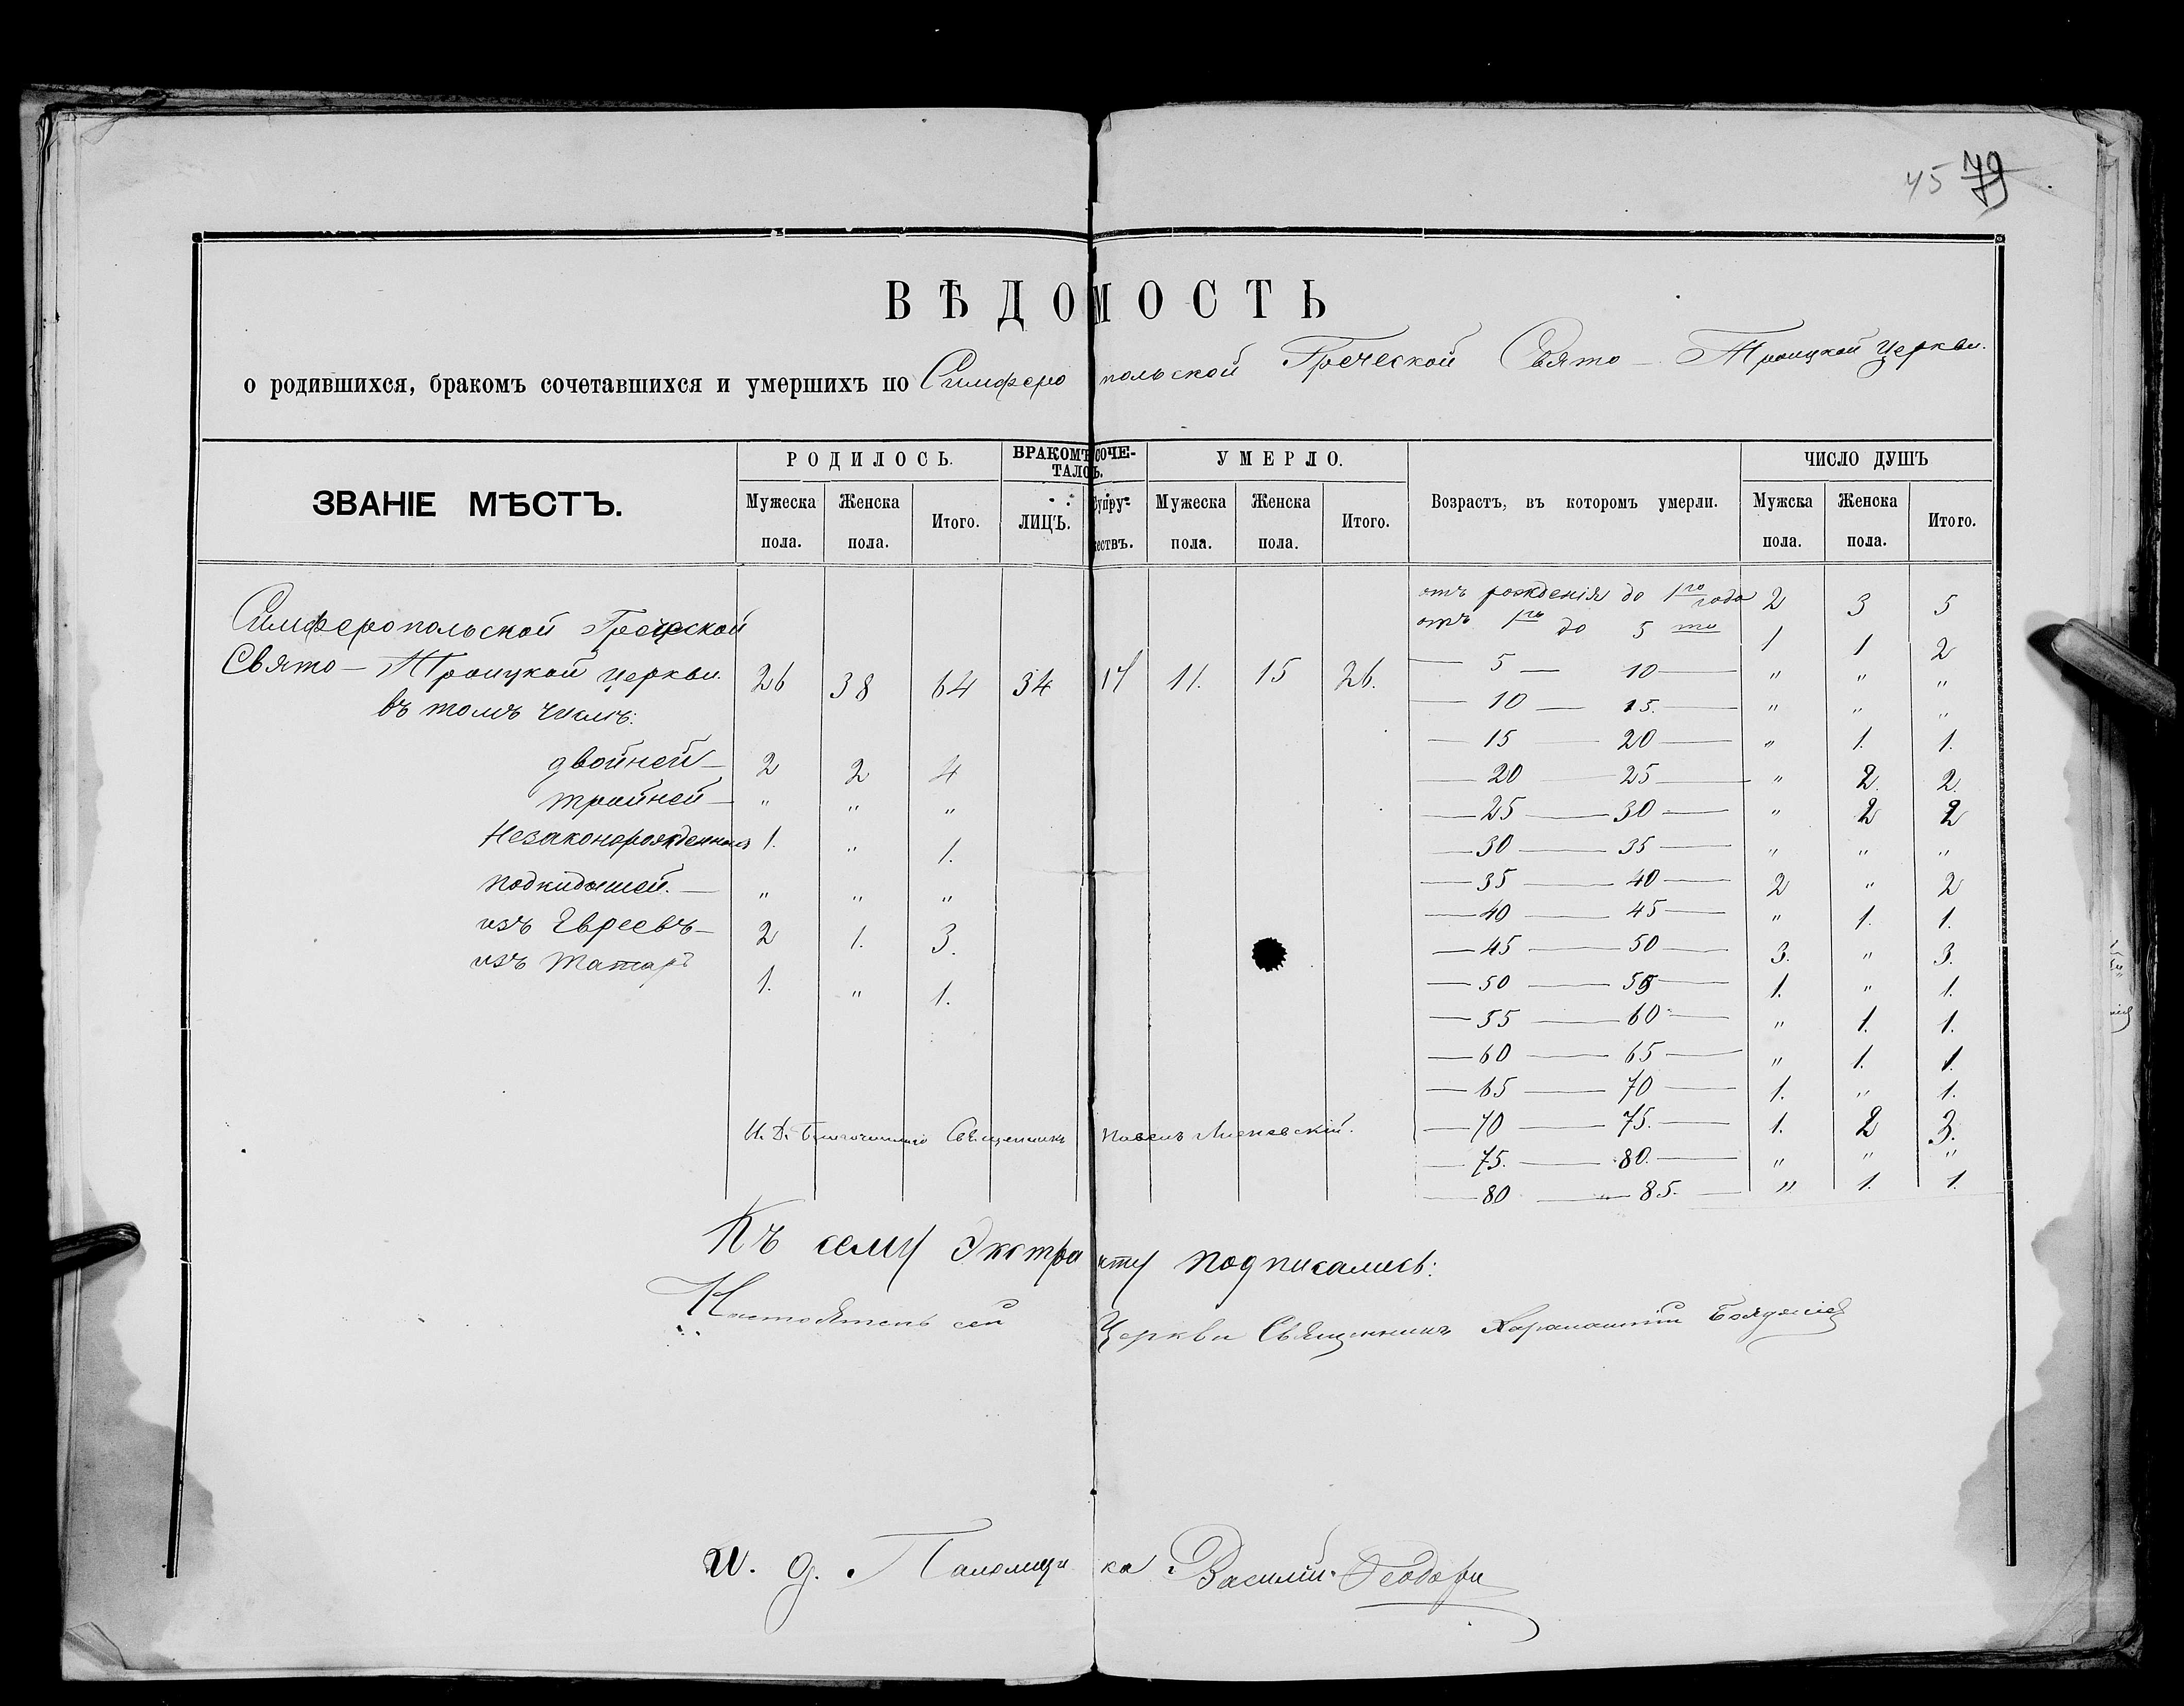 45 79
ВѢДОМОСТЬ
о родившихся, бракомъ сочетавшихся и умершихъ по Симферопольской Греческой Свято-Троицкой Церкви.
ЗВАНІЕ МѢСТЪ. РОДИЛОСЬ. БРАКОМЪ СОЧЕТАЛОСЬ. УМЕРЛО. Возрастъ, въ которомъ умерли. ЧИСЛО ДУШЪ
Мужеска пола. Женска пола. Итого. ЛИЦЪ. Супружествъ. Мужеска пола. Женска пола. Итого. Мужска пола. Женска пола. Итого.
Симферопольской Греческой
Свято-Троицкой церкви 26 38 64 34 17 11. 15 26.
въ томъ числѣ:
двойней — 2 2 4
тройней — " " "
Незаконорожденныхъ 1. " 1.
подкидышей — " " "
изъ Евреевъ — 2 1. 3.
изъ Татаръ 1. " 1.
отъ рожденія до 1го года 2 3 5
отъ 1го до 5ти 1 1 2
— 5 — 10 — " " "
— 10 — 15. — " " "
— 15 — 20 — " 1. 1.
— 20 — 25 — " 2. 2.
— 25 — 30 — " 2 2
— 30 — 35 — " " "
— 35 — 40 — 2 " 2
— 40 — 45 — " 1. 1.
— 45 — 50 — 3. " 3.
— 50 — 55 — 1. " 1.
— 55 — 60 — " 1. 1.
— 60 — 65 — " 1. 1.
— 65 — 70 — 1. " 1.
— 70 — 75. — 1. 2 3.
— 75. — 80. — " " "
— 80 — 85. — " 1. 1.
И. Д. Благочиннаго Священникъ Павелъ
Къ сему Экстракту подписались:
Настоятель сей Церкви Священникъ Харалампій
И. д. Псаломщика Василій Феодори